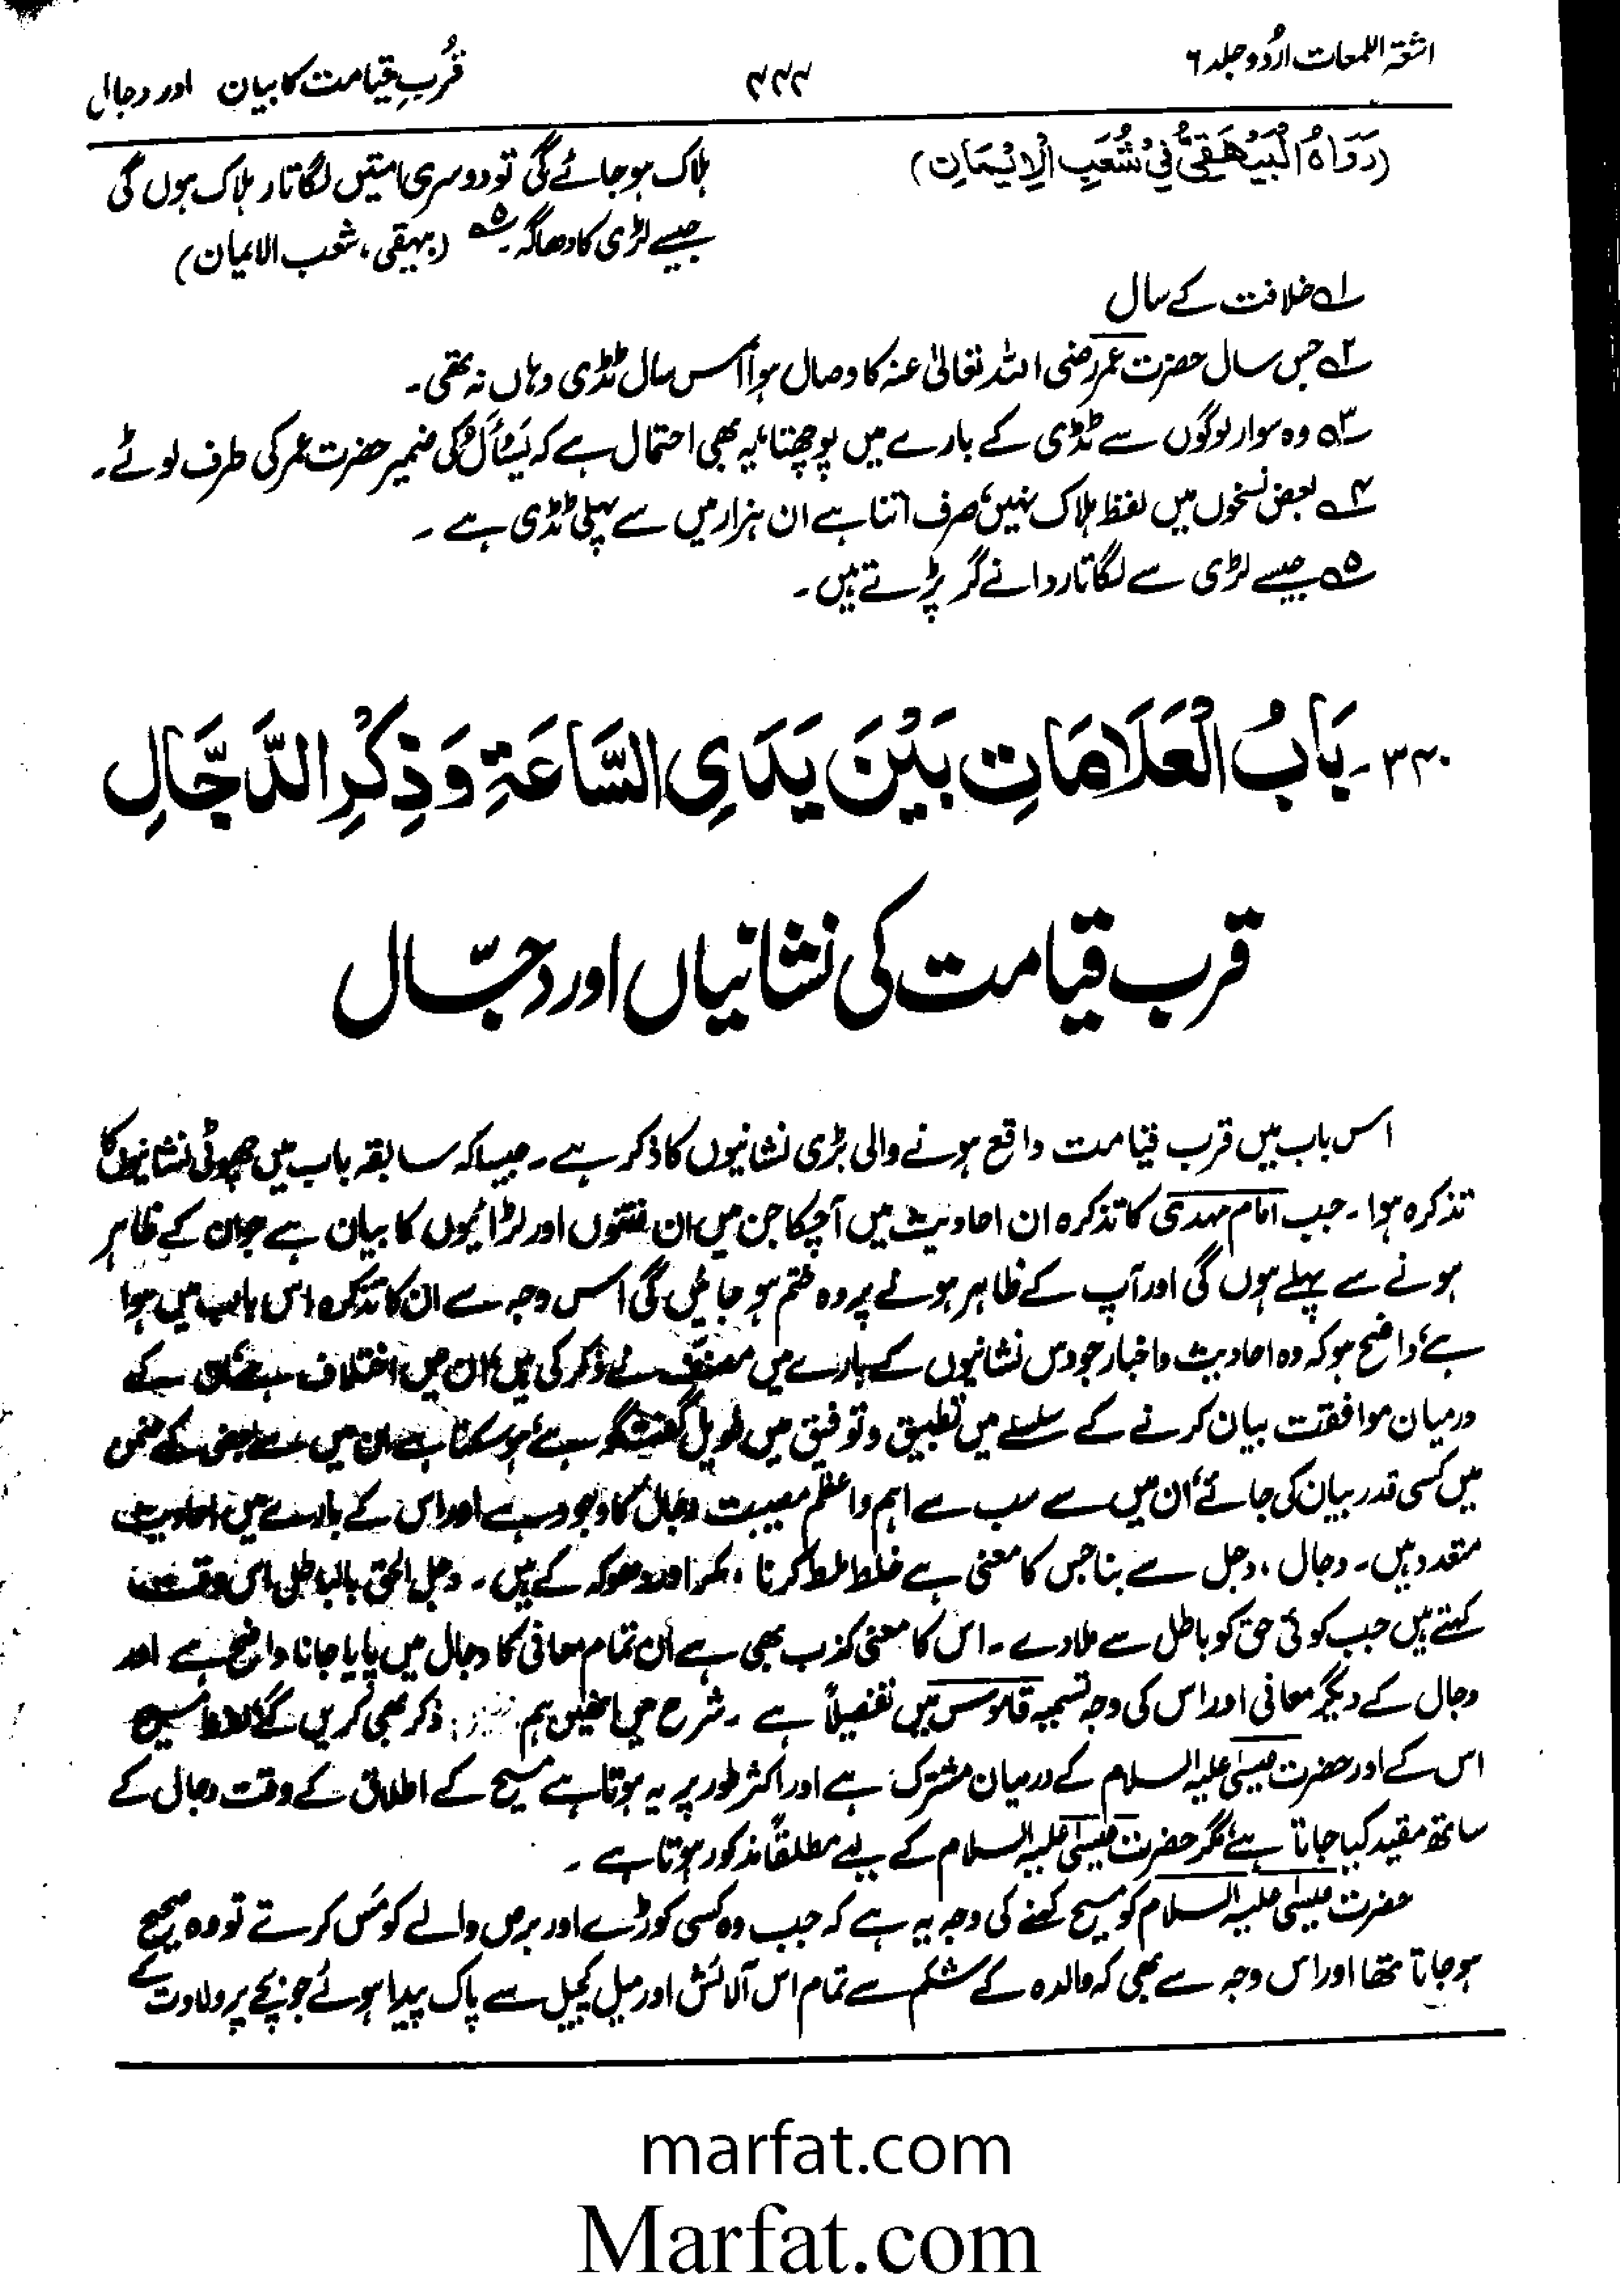 اشعۃ اللمعات اردو جلد ۶
۴۴۴
قُربِ قیامت کا بیان اور دجال
(رَوَاهُ الْبَيْهَقِيُّ فِيْ شُعَبِ الْاِيْمَانِ)
ہلاک ہو جائے گی تو دوسری امتیں لگاتار ہلاک ہوں گی
جیسے لڑی کا دھاگہ۔ ۵ (بیہقی، شعب الایمان)
۱ خلافت کے سال
۲ جس سال حضرت عمر رضی اللہ تعالیٰ عنہ کا وصال ہوا اس سال ٹڈی وہاں نہ تھی۔
۳ وہ سوار لوگوں سے ٹڈی کے بارے میں پوچھتا، یہ بھی احتمال ہے کہ یَسْأَلُ کی ضمیر حضرت عمر کی طرف لوٹے۔
۴ بعض نسخوں میں لفظ ہلاک نہیں، صرف اتنا ہے ان ہزار میں سے پہلی ٹڈی ہے۔
۵ جیسے لڑی سے لگاتار دانے گر پڑتے ہیں۔
۳۴۰۔ بَابُ الْعَلَامَاتِ بَيْنَ يَدَىِ السَّاعَةِ وَذِكْرِ الدَّجَّالِ
قرب قیامت کی نشانیاں اور دجّال
اس باب میں قرب قیامت واقع ہونے والی بڑی نشانیوں کا ذکر ہے۔ جیسا کہ سابقہ باب میں چھوٹی نشانیوں کا
تذکرہ ہوا۔ جب امام مہدی کا تذکرہ ان احادیث میں آچکا جن میں ان فتنوں اور لڑائیوں کا بیان ہے جو ان کے ظاہر
ہونے سے پہلے ہوں گی اور آپ کے ظاہر ہونے پر وہ ختم ہو جائیں گی اس وجہ سے ان کا تذکرہ اس باب میں ہوا
ہے، واضح ہو کہ وہ احادیث و اخبار جو دس نشانیوں کے بارے میں مصنف نے ذکر کی ہیں، ان میں اختلاف ہے، ان کے
درمیان موافقت بیان کرنے کے سلسلے میں تطبیق و توفیق میں طویل گفتگو ہے، ہو سکتا ہے ان میں سے بعض کے ضمن
میں کسی قدر بیان کی جائے، ان میں سے سب سے اہم و اعظم مصیبت دجال کا وجود ہے اور اس کے بارے میں احادیث
متعدد ہیں۔ دجال، دجل سے بنا جس کا معنی ہے خلط ملط کرنا، مکر اور دھوکہ کے ہیں۔ دجل الحق بالباطل اس وقت
کہتے ہیں جب کوئی حق کو باطل سے ملا دے۔ اس کا معنی کذب بھی ہے ان تمام معانی کا دجال میں پایا جانا واضح ہے اور
دجال کے دیگر معانی اور اس کی وجہ تسمیہ قاموس میں تفصیلاً ہے۔ شرح میں انھیں ہم ذکر بھی کریں گے لفظ مسیح
اس کے اور حضرت عیسیٰ علیہ السلام کے درمیان مشترک ہے اور اکثر طور پر یہ ہوتا ہے مسیح کے اطلاق کے وقت دجال کے
ساتھ مقید کیا جاتا ہے، مگر حضرت عیسیٰ علیہ السلام کے لیے مطلقاً مذکور ہوتا ہے۔
حضرت عیسیٰ علیہ السلام کو مسیح کہنے کی وجہ یہ ہے کہ جب وہ کسی کوڑھے اور برص والے کو مَس کرتے تو وہ صحیح
ہو جاتا تھا اور اس وجہ سے بھی کہ والدہ کے شکم سے تمام اس آلائش اور میل کچیل سے پاک پیدا ہوئے جو بچے پر ولادت کے
marfat.com
Marfat.com